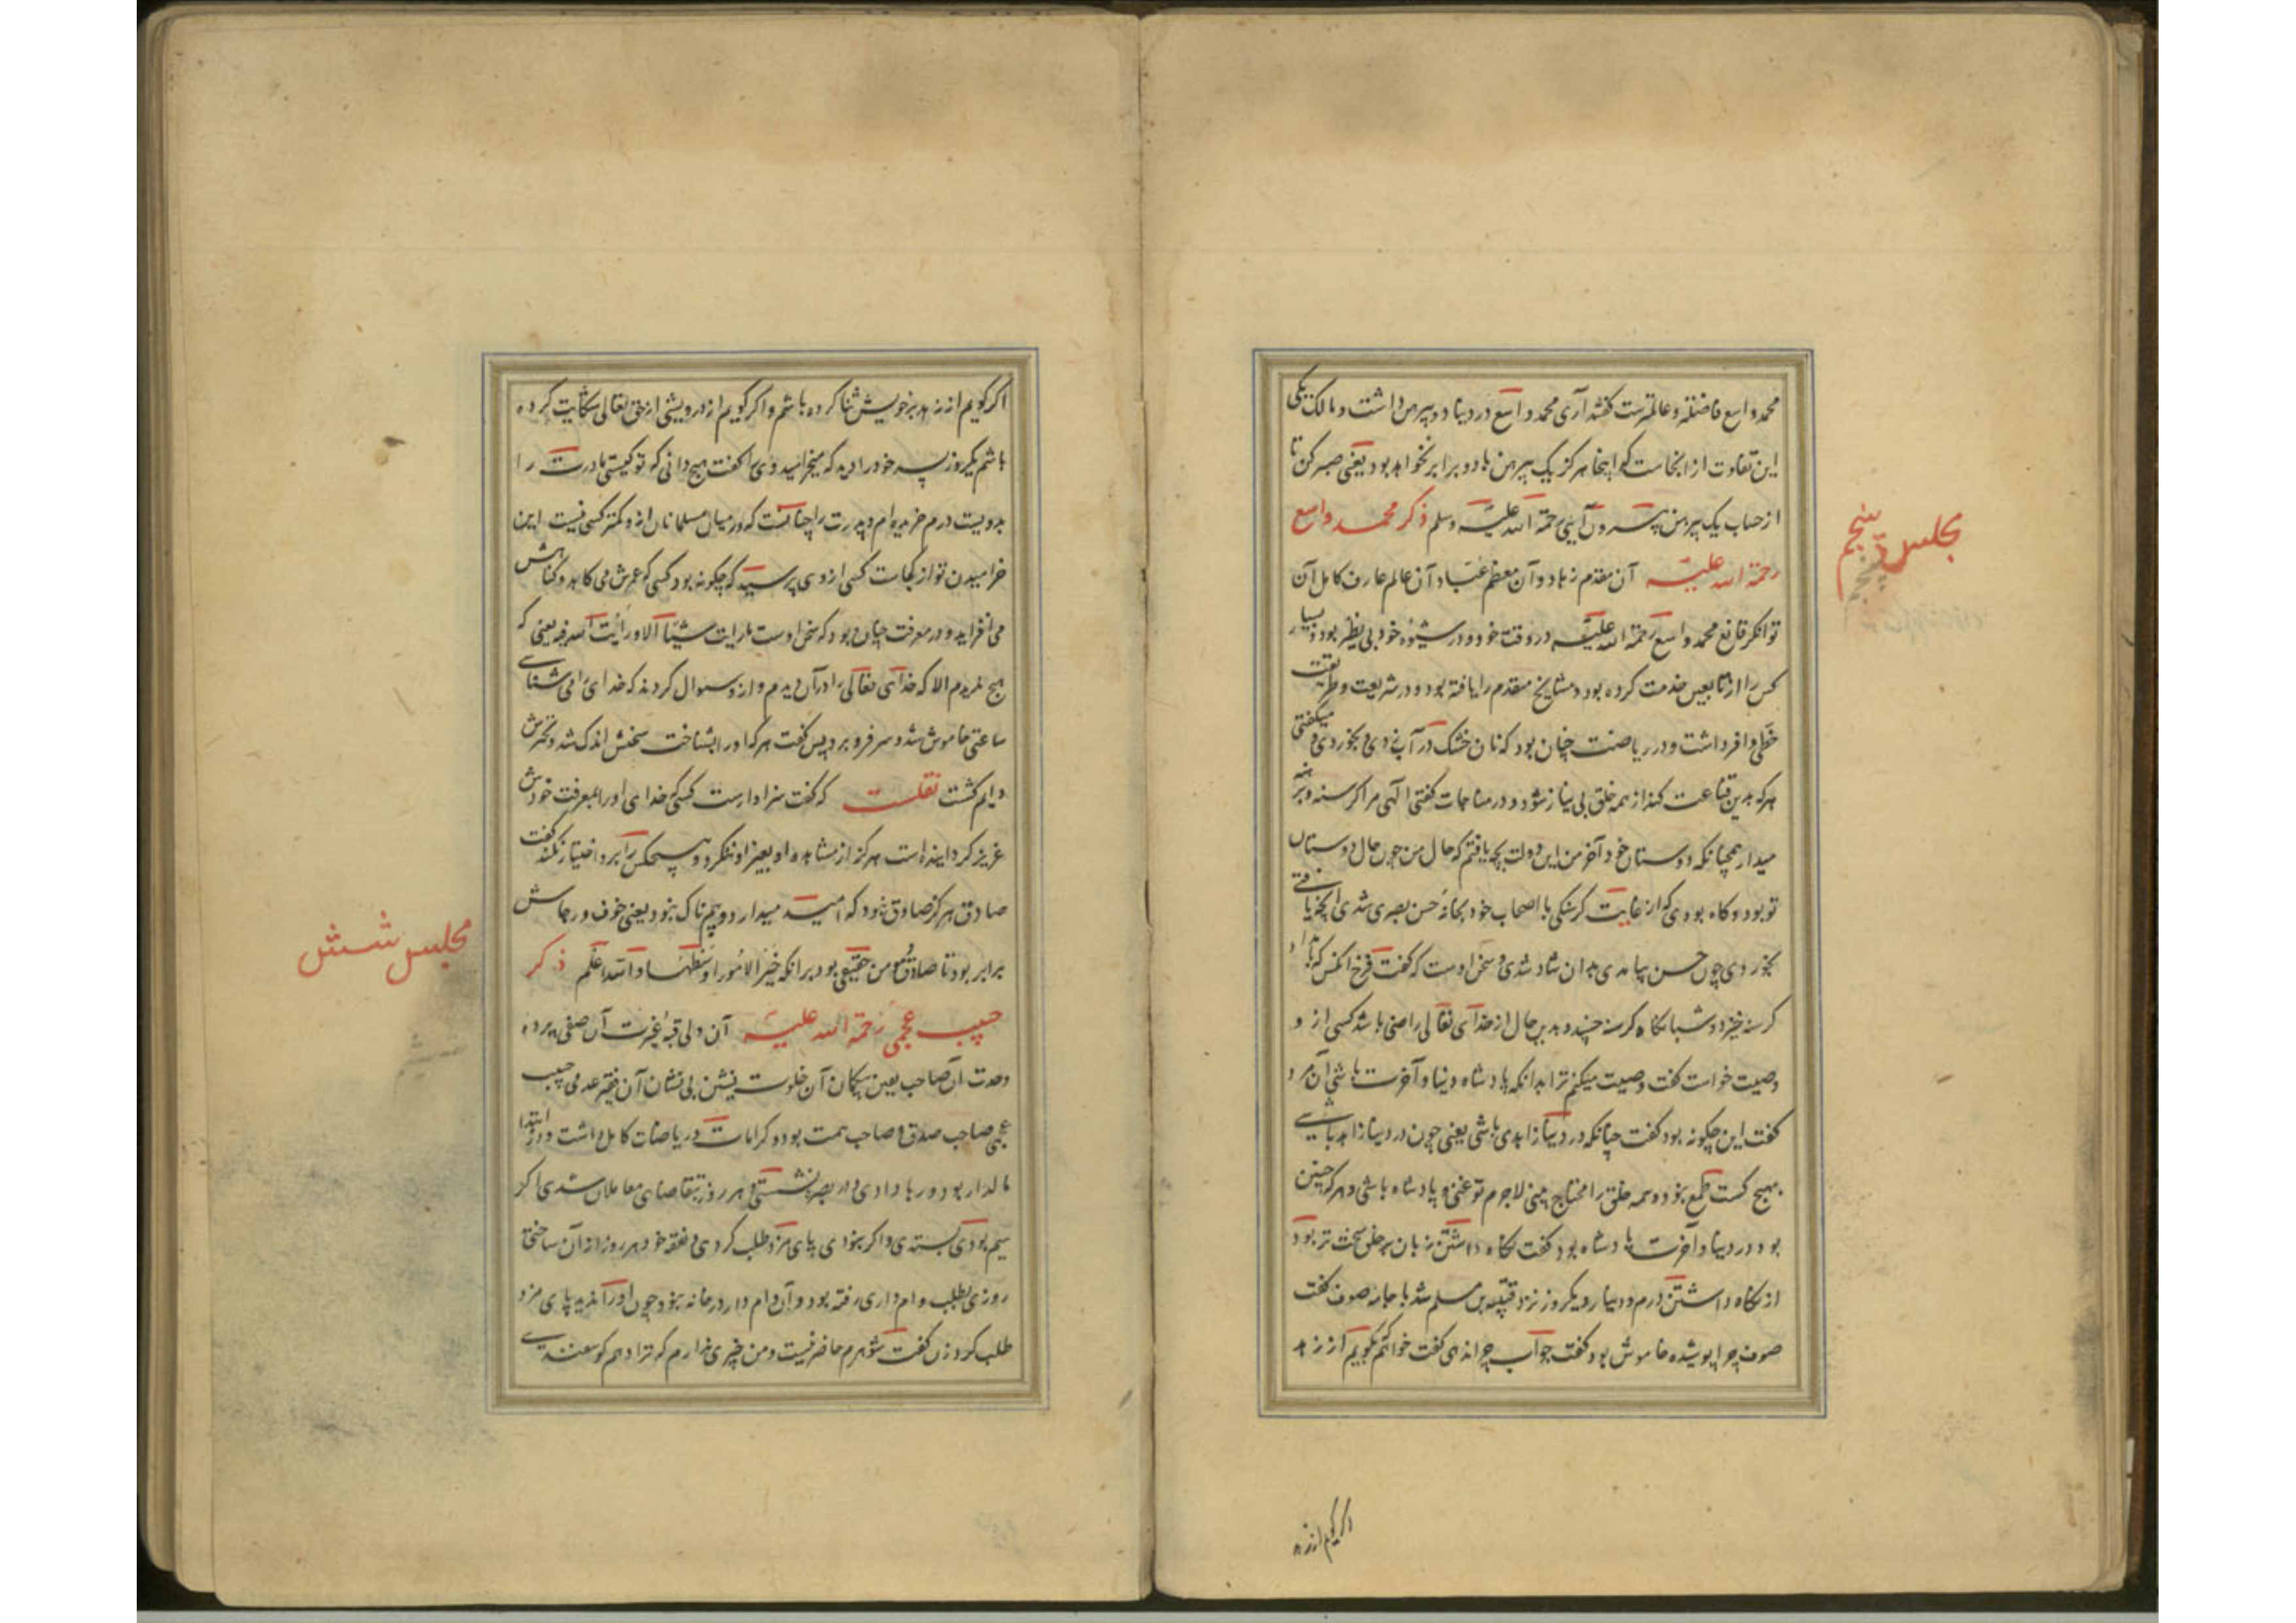 محمد واسع فاضلتر و عالمترست گفتند آری محمد واسع در دنیا دو پیرهن داشت و مالک یکی
این تفاوت از اینجاست که اینجا هرگز یک پیرهن با دو برابر نخواهد بود یعنی صبر کن تا
از حساب یک پیرهن بیرون آیی رحمة الله علیه وسلم ذکر محمد واسع
رحمة الله علیه آن مقدم زهاد و آن معظم عباد آن عالم عارف کامل آن
توانگر قانع محمد واسع رحمة الله علیه در وقت خود و در شیوه خود بی نظیر بود و بسیار
کس را از تابعین خدمت کرده بود و مشایخ متقدم را یافته بود و در شریعت و طریقت
حظی وافر داشت و در ریاضت چنان بود که نان خشک در آب زدی و بخوردی و میگفتی
هرکه بدین قناعت کند از همه خلق بی نیاز شود و در مناجات گفتی الهی مرا گرسنه و برهنه
میدار همچنانکه دوستان خود آخر من این دولت بچه یافتم که حال من چون حال دوستان
تو بود و گاه بودی که از غایت گرسنگی با اصحاب خود بخانه حسن بصری شدی آنچه یافتی
بخوردی چون حسن بیامدی بدان شاد شدی و سخن اوست که گفت فرخ آنکس که بامداد
گرسنه خیزد و شبانگاه گرسنه خسبد و بدین حال از خدای تعالی راضی باشد کسی از و
وصیت خواست گفت وصیت میکنم ترا بدانکه پادشاه دنیا و آخرت باشی آن مرد
گفت این چگونه بود گفت چنانکه در دنیا زاهدی باشی یعنی چون در دنیا زاهد باشی
بهیچ کست طمع نبود و همه خلق را محتاج بینی لاجرم تو غنی و پادشاه باشی و هرکه چنین
بود در دنیا و آخرت پادشاه بود گفت نگاه داشتن زبان بر خلق سخت تر بود
از نگاه داشتن درم و دینار و یکروز نزد قتیبه بن مسلم شد با جامه صوف گفت
صوف چرا پوشیده خاموش بود گفت جواب چرا ندهی گفت خواهم بگویم از زهد
مجلس پنجم
اگر گویم از زهد
اگر گویم از زهد بر خویش ثنا کرده باشم و اگر گویم از درویشی از حق تعالی شکایت کرده
باشم یکروز پسر خود را دید که میخرامید وی را گفت هیچ دانی که تو کیستی مادرت را
بدویست درم خریده ام و پدرت را چنانست که در میان مسلمانان از و کمتر کسی نیست این
خرامیدن تو از کجاست کسی از وی پرسید که چگونه بود کسی که عمرش می کاهد و گناهش
می افزاید و در معرفت چنان بود که سخن اوست ما رایت شیئا الا و رأیت الله فیه یعنی که
هیچ ندیدم الا که خدای تعالی را در آن دیدم و از و سوال کردند که خدای را می شناسی
ساعتی خاموش شد و سر فرو برد پس گفت هرکه او را بشناخت سخنش اندک شد و تحیرش
دایم گشت نقلست که گفت سزاوارست کسی که خدای او را بمعرفت خودش
عزیز گردانیده است هرگز از مشاهده او بغیر او ننگرد و هیچکس را برو اختیار نکند گفت
صادق هرگز صادق نبود که امید میدارد و بیم ناک نبود یعنی خوف و رجاش
برابر بود تا صادق مومن حقیقی بود برانکه خیر الامور اوسطها والله اعلم ذکر
حبیب عجمی رحمة الله علیه آن ولی قبه غیرت آن صفی پرده
وحدت آن صاحب یقین بیگمان آن خلوت نشین بی نشان آن فقیر عدمی حبیب
عجمی صاحب صدق و صاحب همت بود و کرامات و ریاضات کامل داشت و در ابتدا
مالدار بود و ربا دادی و در بصره نشستی و هر روز بتقاضای معاملان شدی اگر
سیم بودی بستدی و اگر نبودی پای مزد طلب کردی و نفقه خود هر روز از آن ساختی
روزی بطلب وام داری رفته بود و آن وام دار در خانه نبود چون او را ندید پای مزد
طلب کرد زن گفت شوهرم حاضر نیست و من چیزی ندارم که ترا دهم گوسفندی
مجلس شش